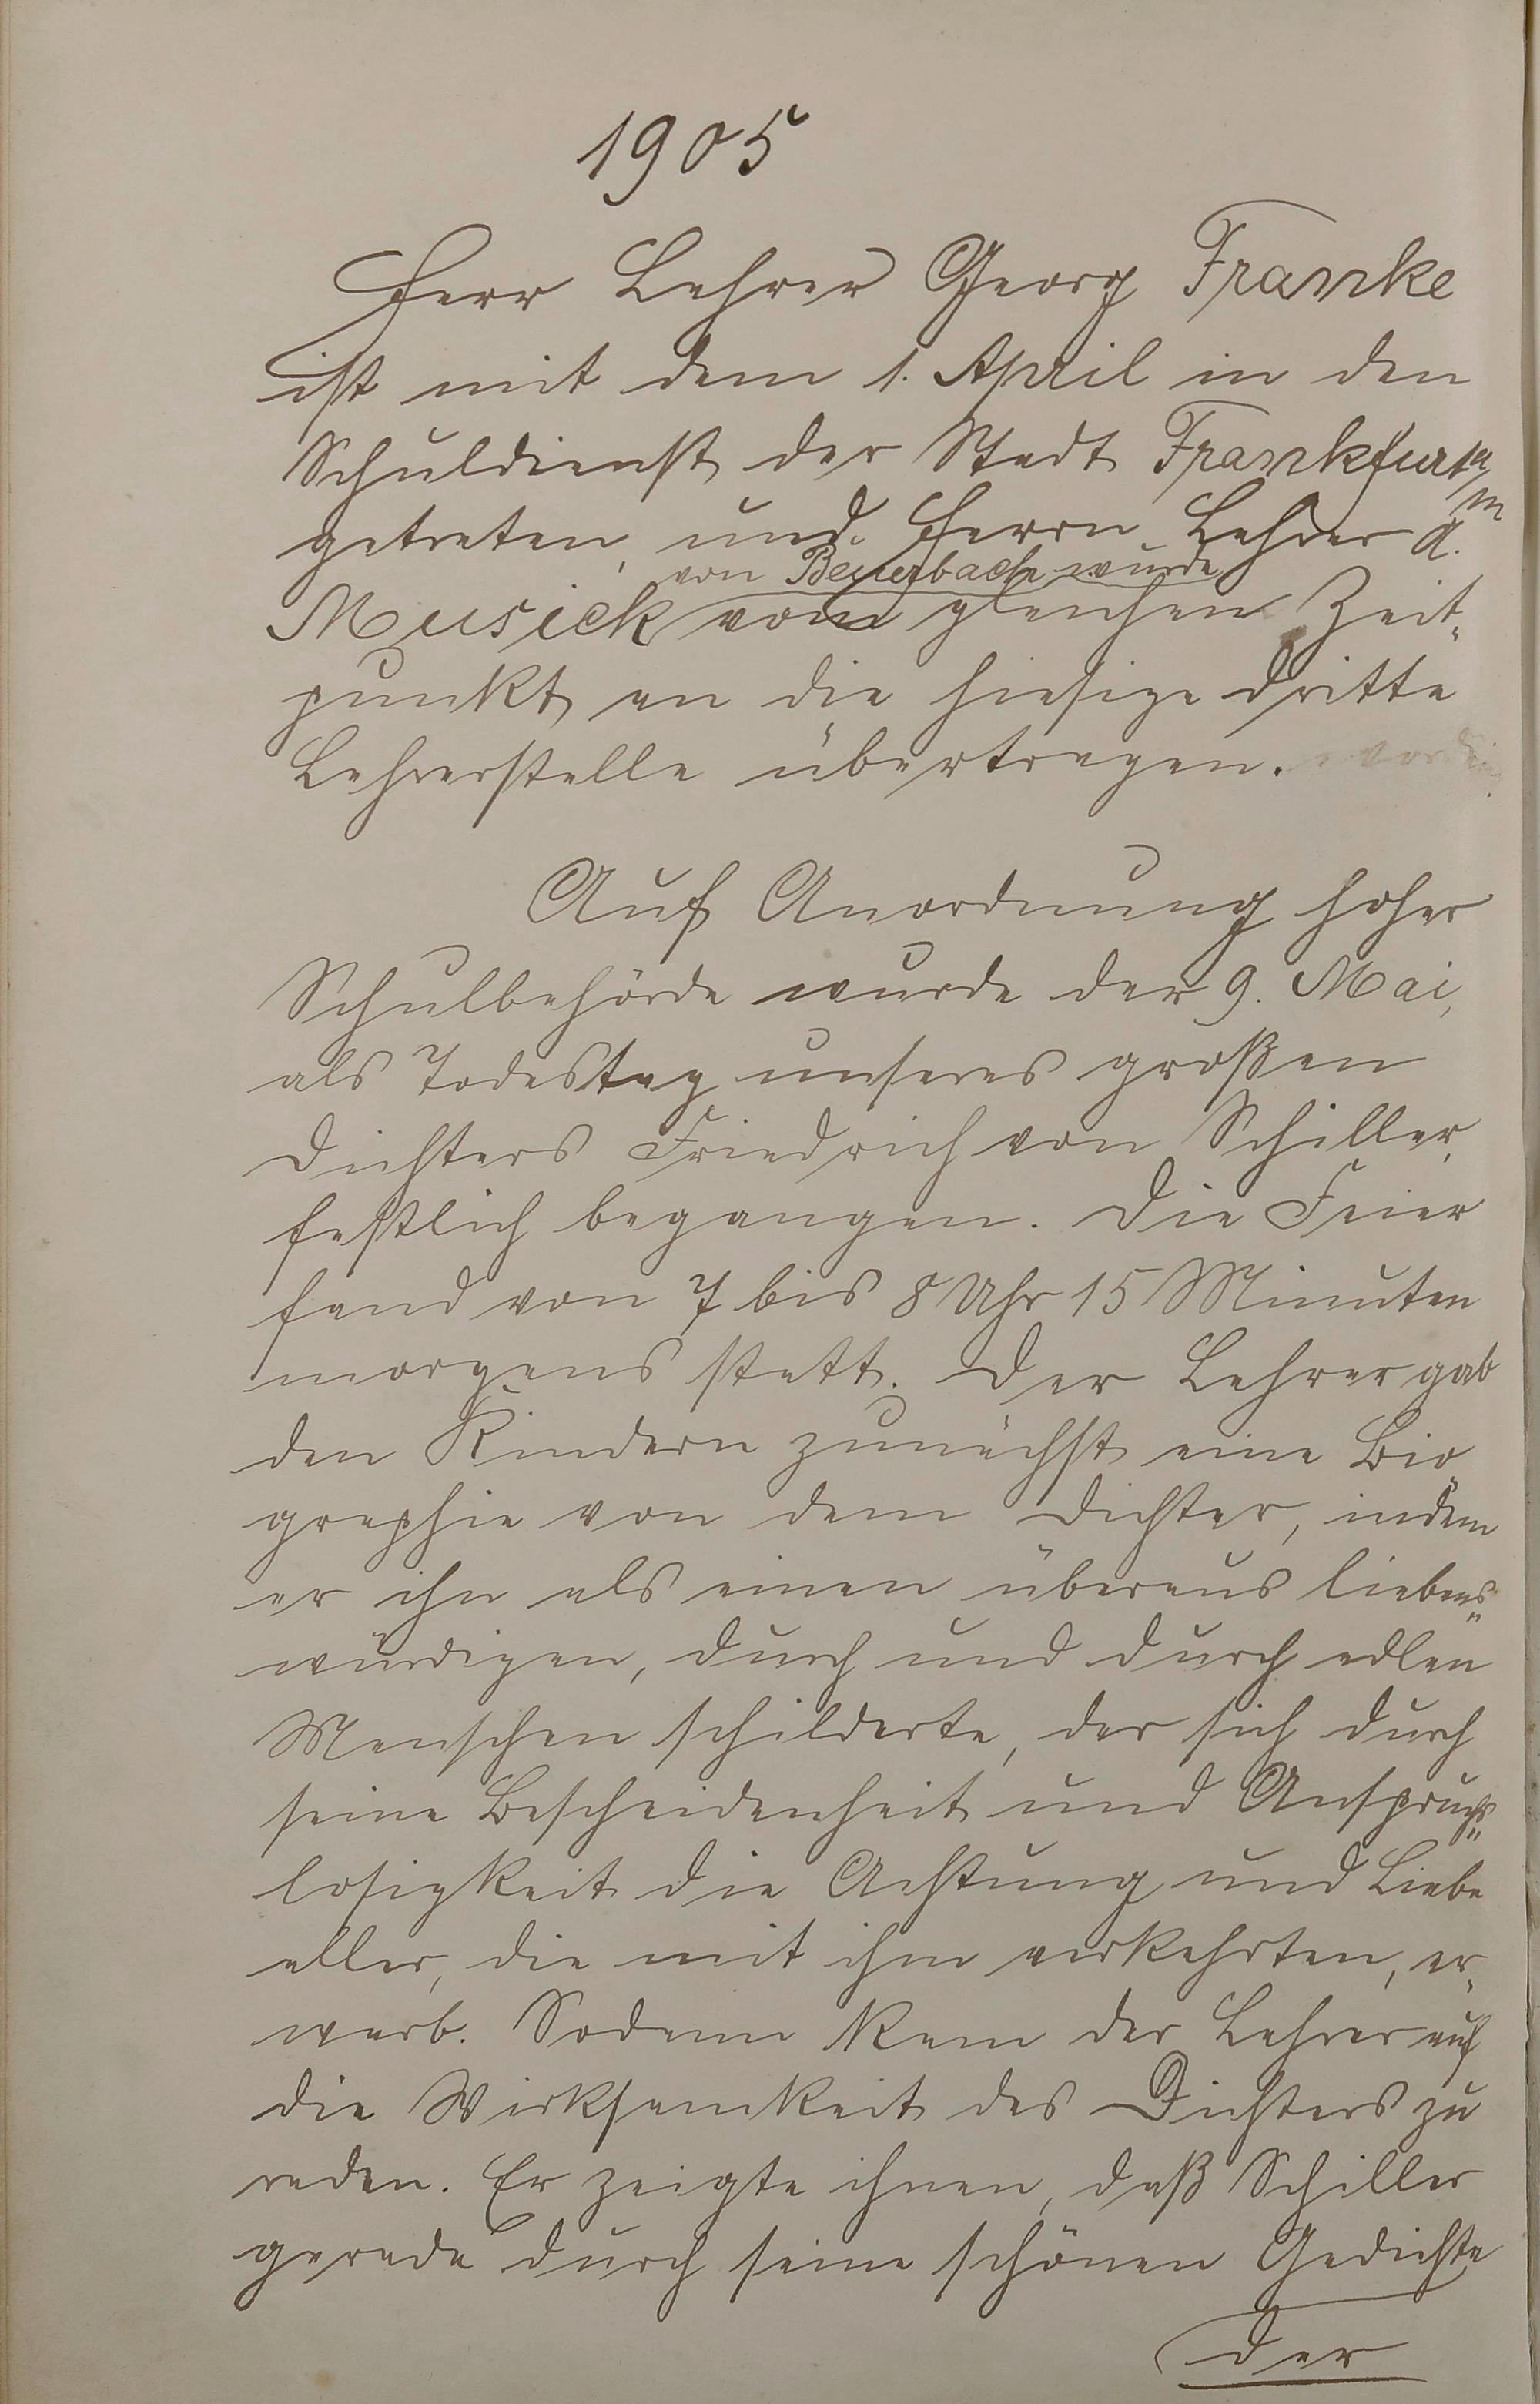 1905
Herr Lehrer Georg Franke
ist mit dem 1. April in den
Schuldienst der Stadt Frankfurt a/m
getreten, und Herrn Lehrer A.
von Beuerbach wurde
Musick vom gleichen Zeit-
punkt an die hiesige dritte
Lehrerstelle übertragen.
Auf Anordnung hoher
Schulbehörde wurde der 9. Mai,
als Todestag unseres großen
Dichters Friedrich von Schiller,
festlich begangen. Die Feier
fand von 7 bis 8 Uhr 15 Minuten
morgens statt. Der Lehrer gab
den Kindern zunächst eine Bio-
graphie von dem Dichter, indem
er ihn als einen überaus liebens-
würdigen, durch und durch edlen
Menschen schilderte, der sich durch
seine Bescheidenheit und Anspruchs-
losigkeit die Achtung und Liebe
aller, die mit ihm verkehrten, er-
warb. Sodann kam der Lehrer auf
die Wirksamkeit des Dichters zu
reden. Er zeigte ihnen, daß Schiller
gerade durch seine schönen Gedichte
der